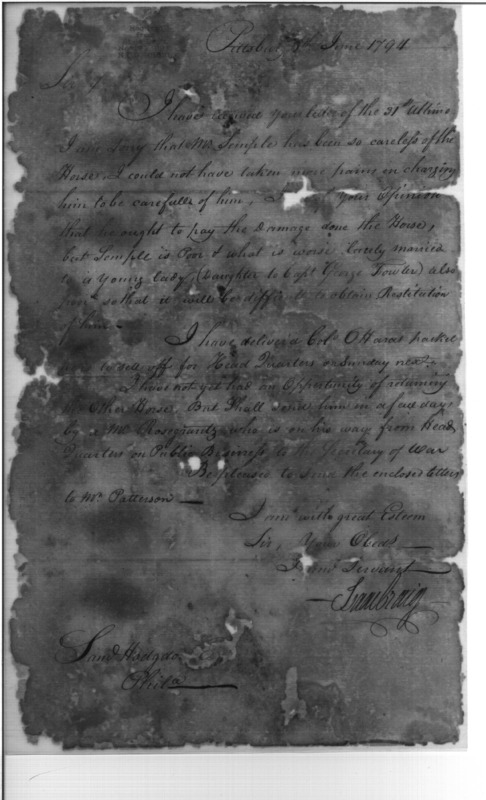 Pittsburg 8th June 1794
Sir
I have received your letter of the 31st Ultimo
I am Sorry that Mr Semple has been so careless of the
Horse as I could not have taken more pains in charging
him to be carefull of him, I your Opinion
that he ought to pay the Damage done the Horse,
but Semple is Poor & what is worse lately married
to a Young Lady (Daughter to Capt George Fowler) also
poor so that it will be difficult to obtain Restitution
of him -
I have delivered Col. OHaras packet
to sett off for Head Quarters on Sunday next
I have not yet had an Opportunity of returning
the Other Horse, But Shall Send him in a few days
by a Mr who is on his way from Head
Quarters on Public Business to the Secretary of War
Be pleased to Send the enclosed letter
to Mr Patterson
I am with great Esteem
Sir, Your Obedt
Humb Servant
Isaac Craig
Saml Hodgdon
Phila